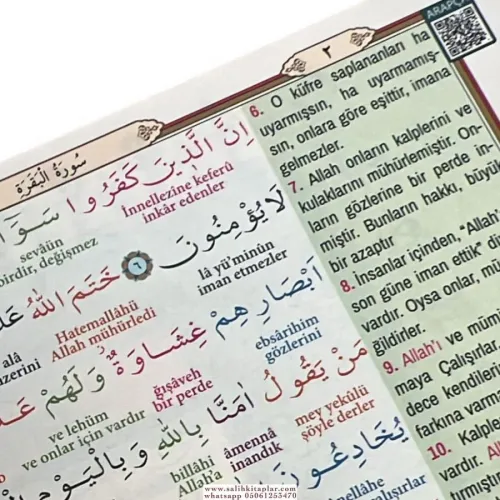 ARAPÇA
٢
سُورَةُ الْبَقَرَةِ
اِنَّ الَّذٖينَ كَفَرُوا سَوَٓا
İnnellezîne keferû
inkâr edenler
sevâün
birdir, değişmez
لَا يُؤْمِنُونَ ﴿٦﴾ خَتَمَ اللّٰهُ
lâ yü'minûn
iman etmezler
Hatemallahü
Allah mühürledi
alâ
اَبْصَارِهِمْ غِشَاوَةٌ وَلَهُمْ
ebsârihim
gözlerini
ğışâveh
bir perde
ve lehüm
ve onlar için vardır
مَنْ يَقُولُ اٰمَنَّا بِاللّٰهِ وَبِالْيَوْمِ
mey yekülü
şöyle derler
âmennâ
inandık
billâhi
Allah'a
يُخَادِعُونَ
6. O küfre saplananları ha
uyarmışsın, ha uyarmamış-
sın, onlara göre eşittir, imana
gelmezler.
7. Allah onların kalplerini ve
kulaklarını mühürlemiştir. On-
ların gözlerine bir perde in-
miştir. Bunların hakkı, büyü
bir azaptır
8. İnsanlar içinden, "Allah
son güne iman ettik" di
vardır. Oysa onlar, mü
ğildirler.
9. Allah'ı ve mümi
maya Çalışırlar.
dece kendilerin
farkına varm
10. Kalple
vardır. A
www.salihkitaplar.com
whatsapp 05061253470